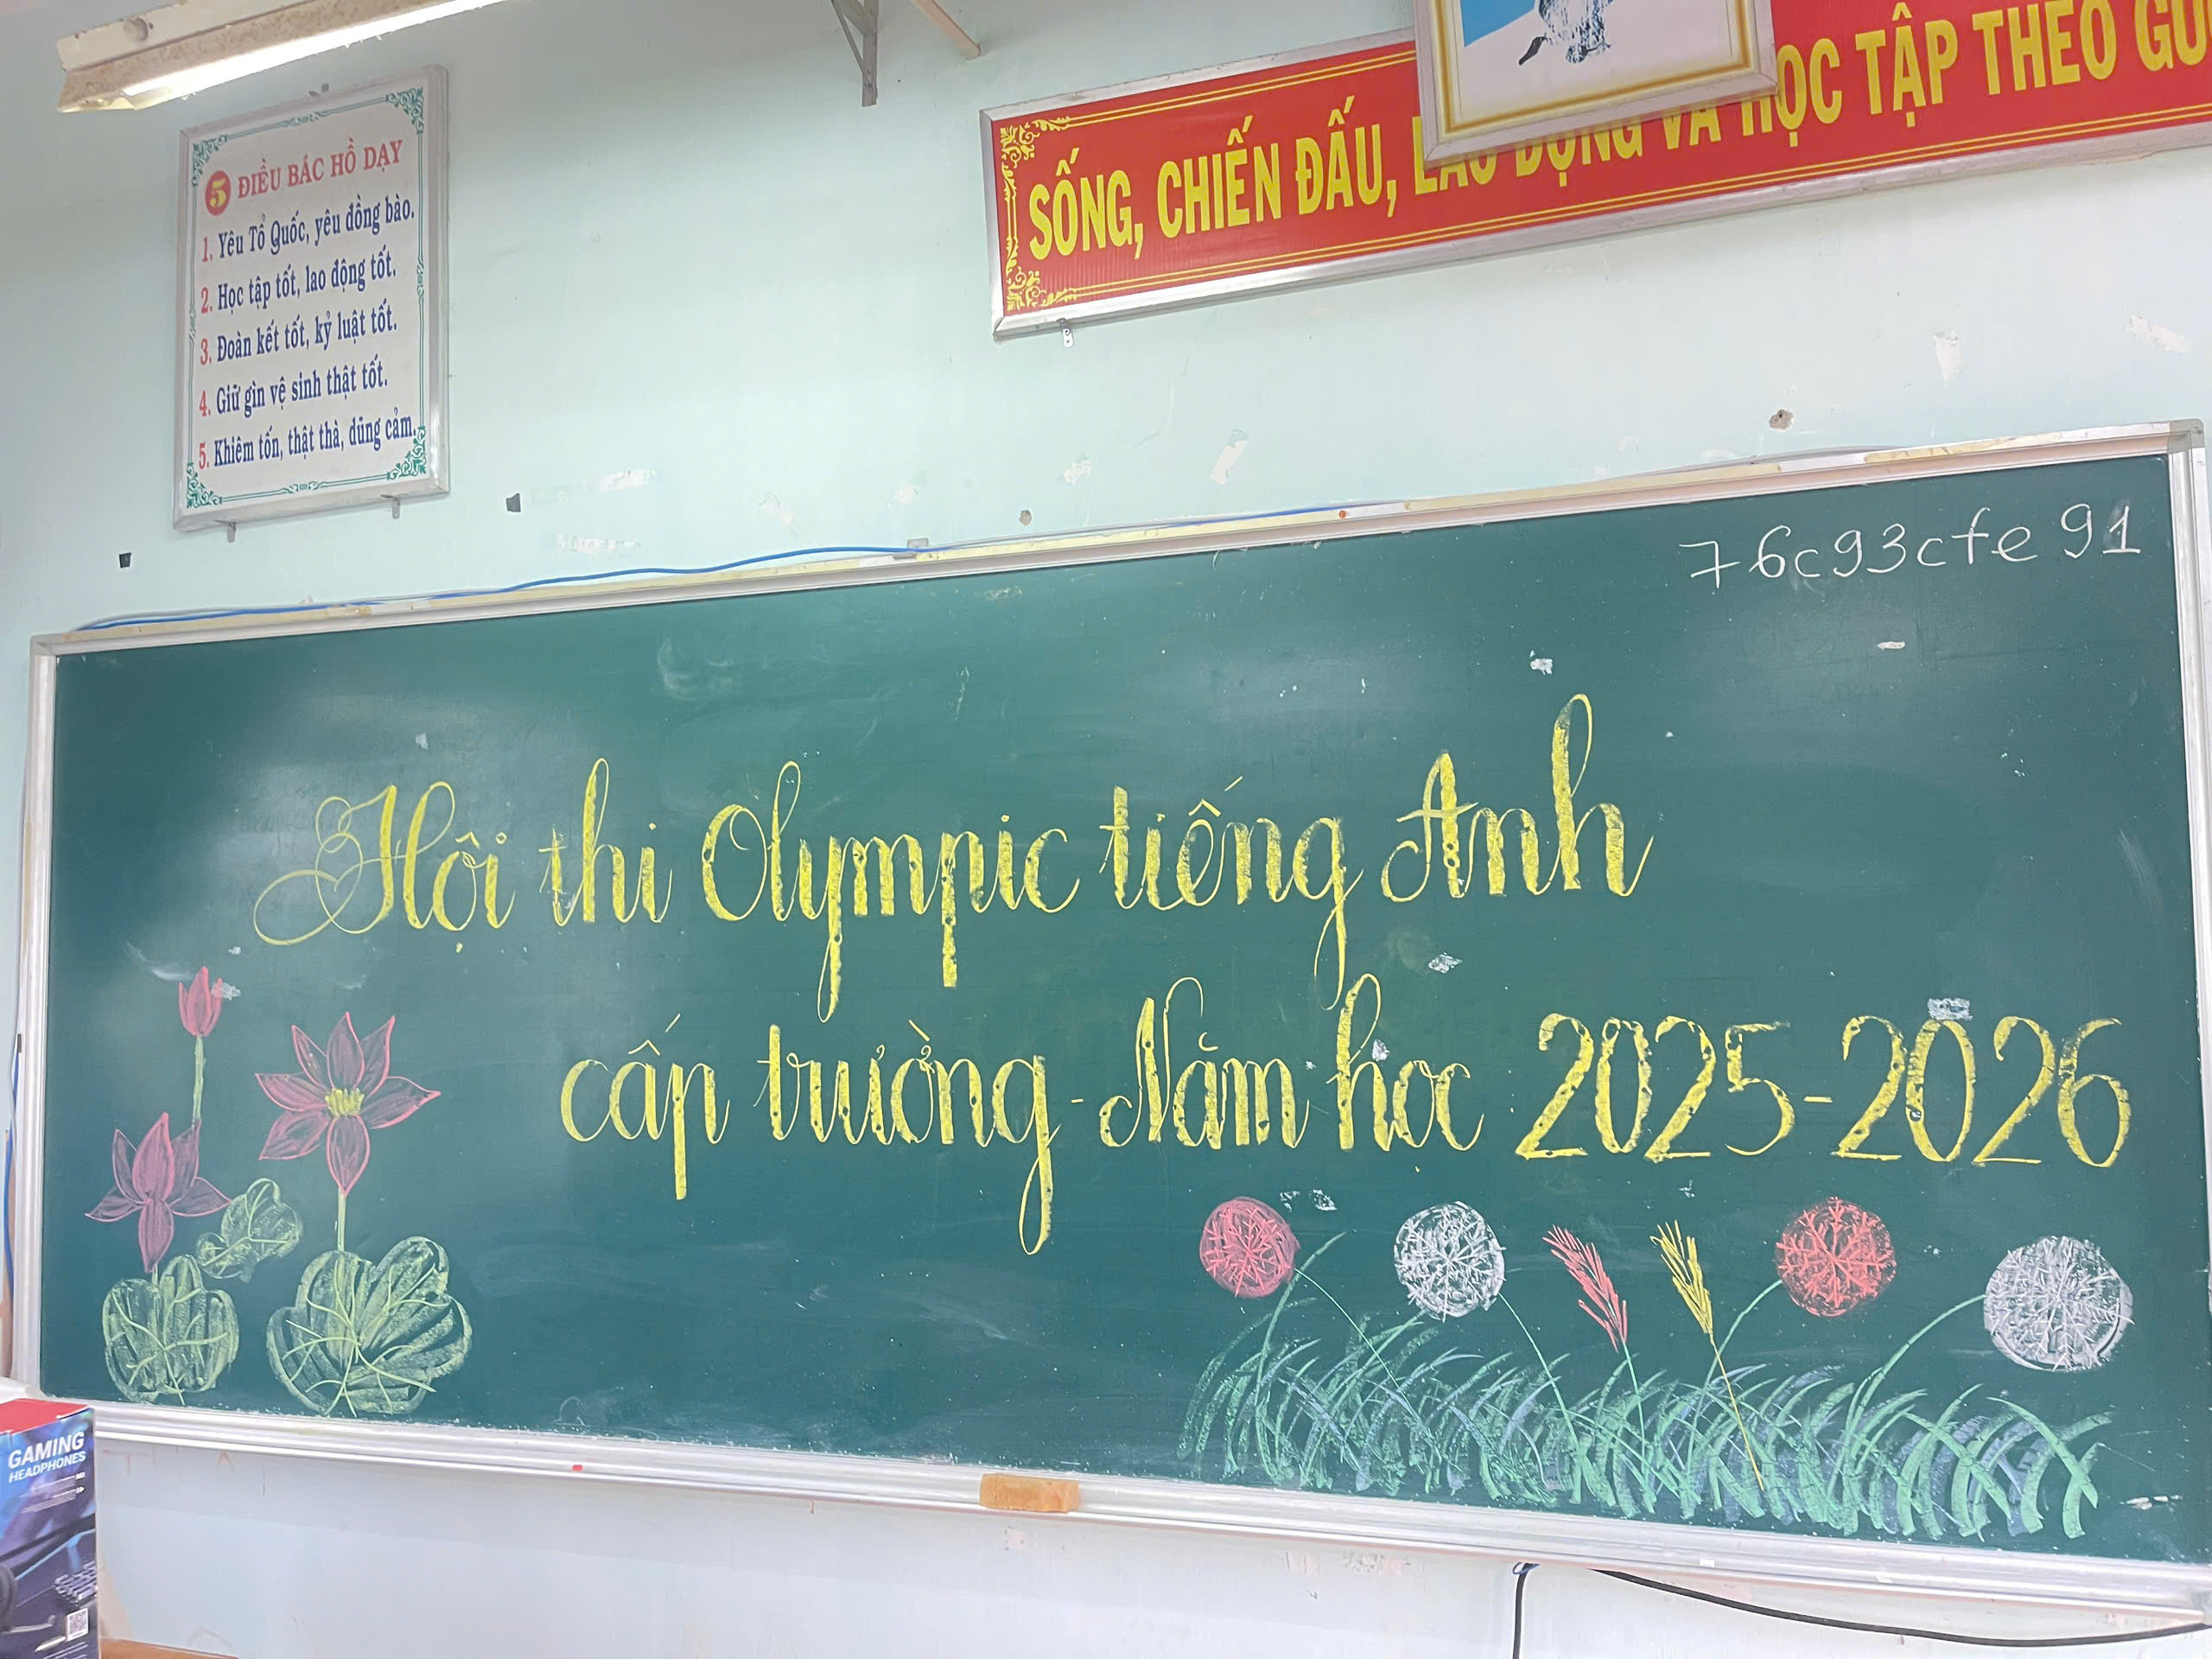 5 ĐIỀU BÁC HỒ DẠY
1. Yêu Tổ Quốc, yêu đồng bào.
2. Học tập tốt, lao động tốt.
3. Đoàn kết tốt, kỷ luật tốt.
4. Giữ gìn vệ sinh thật tốt.
5. Khiêm tốn, thật thà, dũng cảm.
SỐNG, CHIẾN ĐẤU, LAO ĐỘNG VÀ HỌC TẬP THEO
76c93cfe91
Hội thi Olympic tiếng Anh
cấp trường - Năm học 2025-2026
GAMING
HEADPHONES